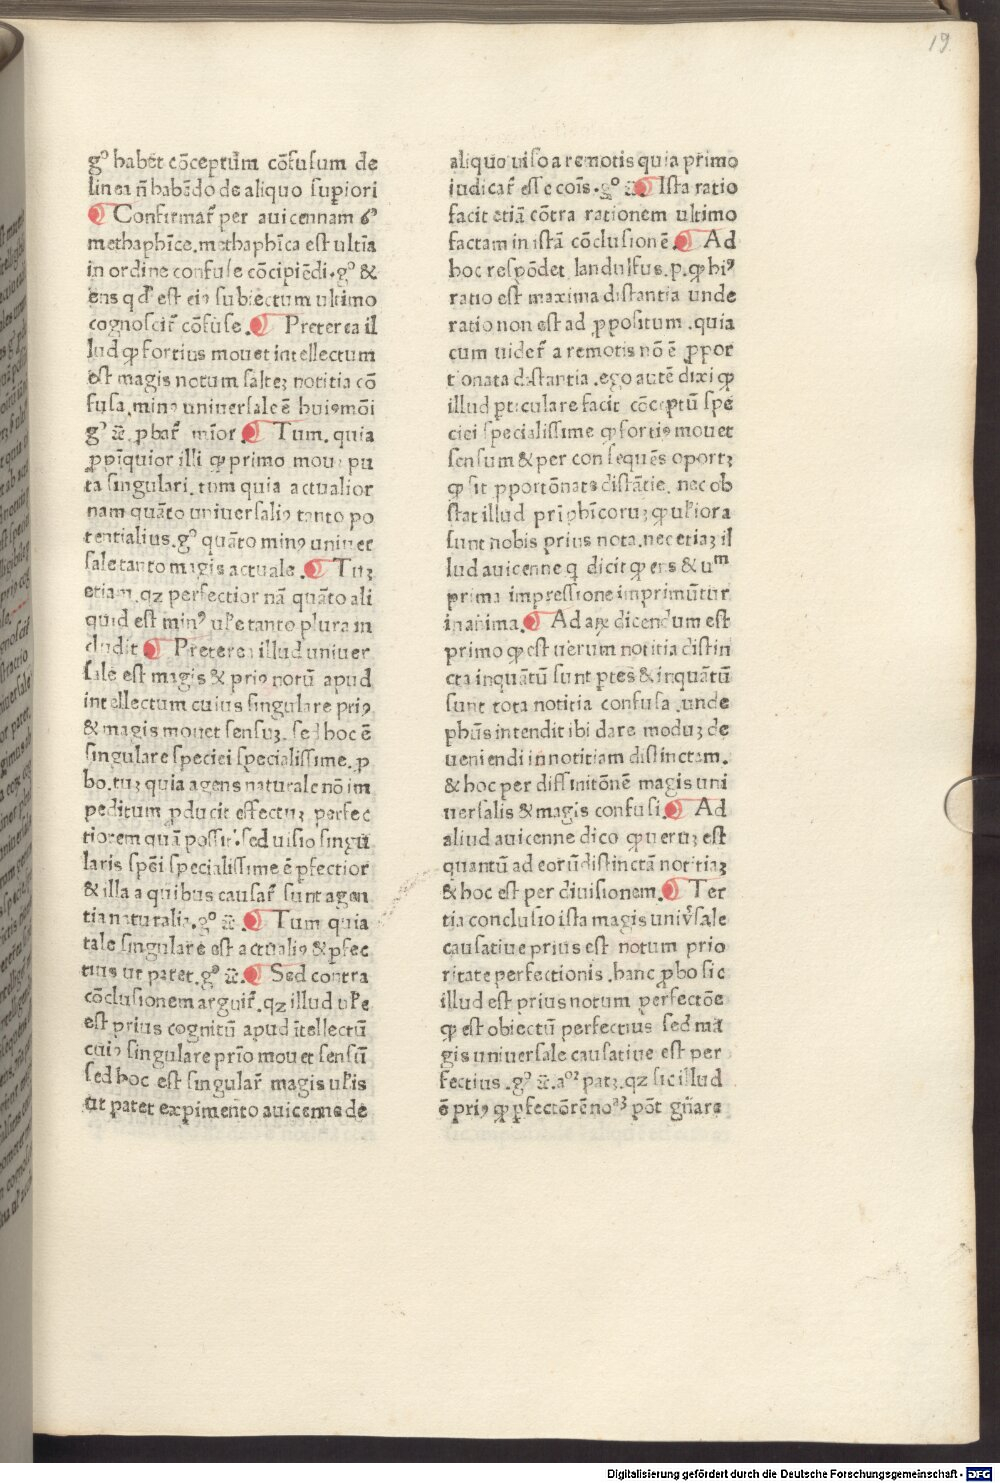 19
gº habēt cōceptum cōfusum de
linea n̄ habēdo de aliquo supiori
¶ Confirmaṫ per auicennam 6º
methaphīce. methaphīca est ultīa
in ordine confuse cōcipiēdi. gº &
ens qd' est eiꝰ subiectum ultimo
cognosciṫ cōfuse. ¶ Preterea il
lud ꝙ fortius mouet intellectum
est magis notum saltez notitia cō
fusa. minꝰ uniuersale ē huiꝰmōi
gº &c̄. pbaṫ mīor ¶ Tum. quia
ꝓpīquior illi ꝙ primo mouȝ pu
ta singulari. tum quia actualior
nam quāto uniuersaliꝰ tanto po
tentialius. gº quāto minꝰ uniuer
sale tanto magis actuale. ¶ Tuȝ
etiam. qz perfectior nā quāto ali
quid est minꝰ ułe tanto plura in
cludit ¶ Preterea illud uniuer
sale est magis & priꝰ notū apud
intellectum cuius singulare priꝰ
& magis mouet sensuȝ. sed hoc ē
singulare speciei specialissime. ꝓ
bo. tuȝ quia agens naturale nō im
peditum ꝓducit effectuȝ perfec
tiorem quā possit. sed uisio singu
laris spēi specialissime ē pfectior
& illa a quibus causaṫ sunt agen
tia naturalia. gº &c̄. ¶ Tum quia
tale singulare est actualiꝰ & pfec
tius ut patet. gº &c̄. ¶ Sed contra
cōclusionem arguiṫ. qz illud ułe
est prius cognitū apud ītellectū
cuiꝰ singulare prīo mouet sensū
sed hoc est singulaṙ magis ułis
ut patet expimento auicenne de
aliquo uiso a remotis quia primo
iudicaṫ esse coīs. gº &c̄ ¶ Ista ratio
facit etiā cōtra rationem ultimo
factam in istā cōclusionē. ¶ Ad
hoc respōdet landulfus. p. ꝙ hiꝰ
ratio est maxima distantia unde
ratio non est ad ꝓpositum. quia
cum uideṫ a remotis nō ē ꝓpor
tionata distantia. ego autē dixi ꝙ
illud pticulare facit cōceptū spe
ciei specialissime ꝙ fortiꝰ mouet
sensum & per consequēs oportȝ
ꝙ sit pportōnata distātie. nec ob
stat illud pri phīcoruȝ ꝙ ułiora
sunt nobis prius nota. nec etiaȝ il
lud auicenne q dicit ꝙ ens & uᵐ
prima impressione imprimūtur
in anima. ¶ Ad aꝝ dicendum est
primo ꝙ est uerum notitia distin
cta inquātū sunt ptes & inquātū
sunt tota notitia confusa. unde
phūs intendit ibi dare moduȝ de
ueniendi in notitiam distinctam.
& hoc per diffinitōnē magis uni
uersalis & magis confusi. ¶ Ad
aliud auicenne dico ꝙ ueruȝ est
quantū ad eorū distinctā notitiaȝ
& hoc est per diuisionem. ¶ Ter
tia conclusio ista magis univ̄sale
causatiue prius est notum prio
ritate perfectionis. hanc ꝓbo sic
illud est prius notum perfectōe
ꝙ est obiectū perfectius sed ma
gis uniuersale causatiue est per
fectius. gº &c̄. aᵒʳ patȝ. qz sic illud
ē priꝰ ꝙ pfectōrē noᵃȝ pōt gn̄are
Digitalisierung gefördert durch die Deutsche Forschungsgemeinschaft - DFG